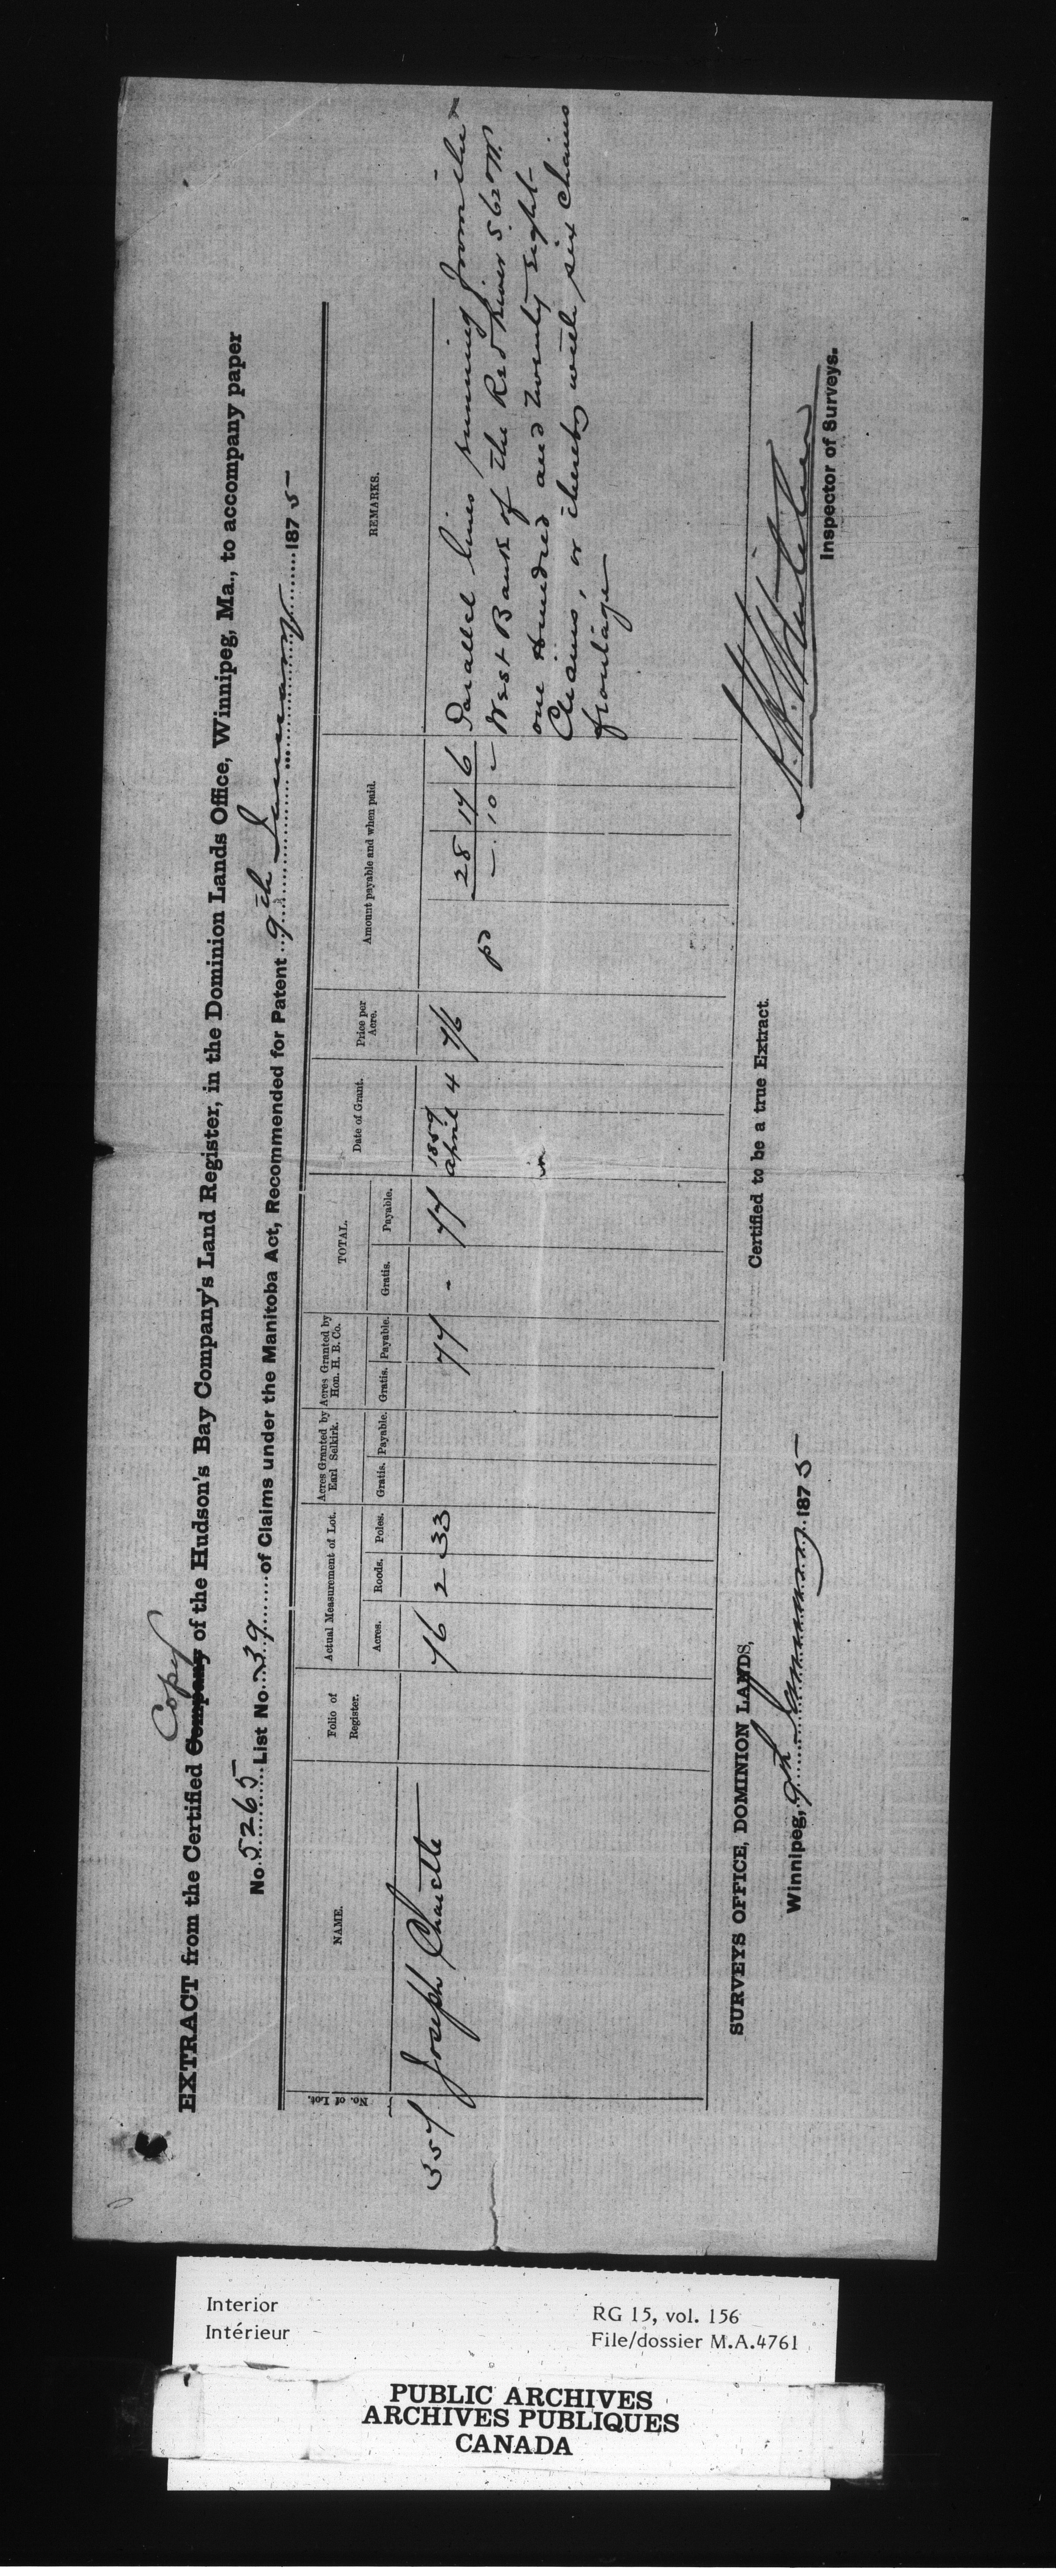 Copy
EXTRACT from the Certified Company of the Hudson's Bay Company's Land Register, in the Dominion Lands Office, Winnipeg, Ma., to accompany paper
No. 5265 List No. 39 of Claims under the Manitoba Act, Recommended for Patent 9th January 1875
No. of Lot.
NAME.
Folio of Register.
Actual Measurement of Lot.
Acres. Roods. Poles.
Acres Granted by Earl Selkirk.
Gratis. Payable.
Acres Granted by Hon. H. B. Co.
Gratis. Payable.
TOTAL.
Gratis. Payable.
Date of Grant.
Price per Acre.
Amount payable and when paid.
REMARKS.
357 Joseph Charette 76 2 33 77 - 77 1859 April 4 7/6 28 17 6
pd - 10 -
Parallel lines running from the
West Bank of the Red River S 62 W.
one Hundred and twenty eight
Chains, or thereby with six chains
frontage
SURVEYS OFFICE, DOMINION LANDS,
Winnipeg, 9th January 1875
Certified to be a true Extract.
Inspector of Surveys.
Interior
Intérieur
RG 15, vol. 156
File/dossier M.A.4761
PUBLIC ARCHIVES
ARCHIVES PUBLIQUES
CANADA